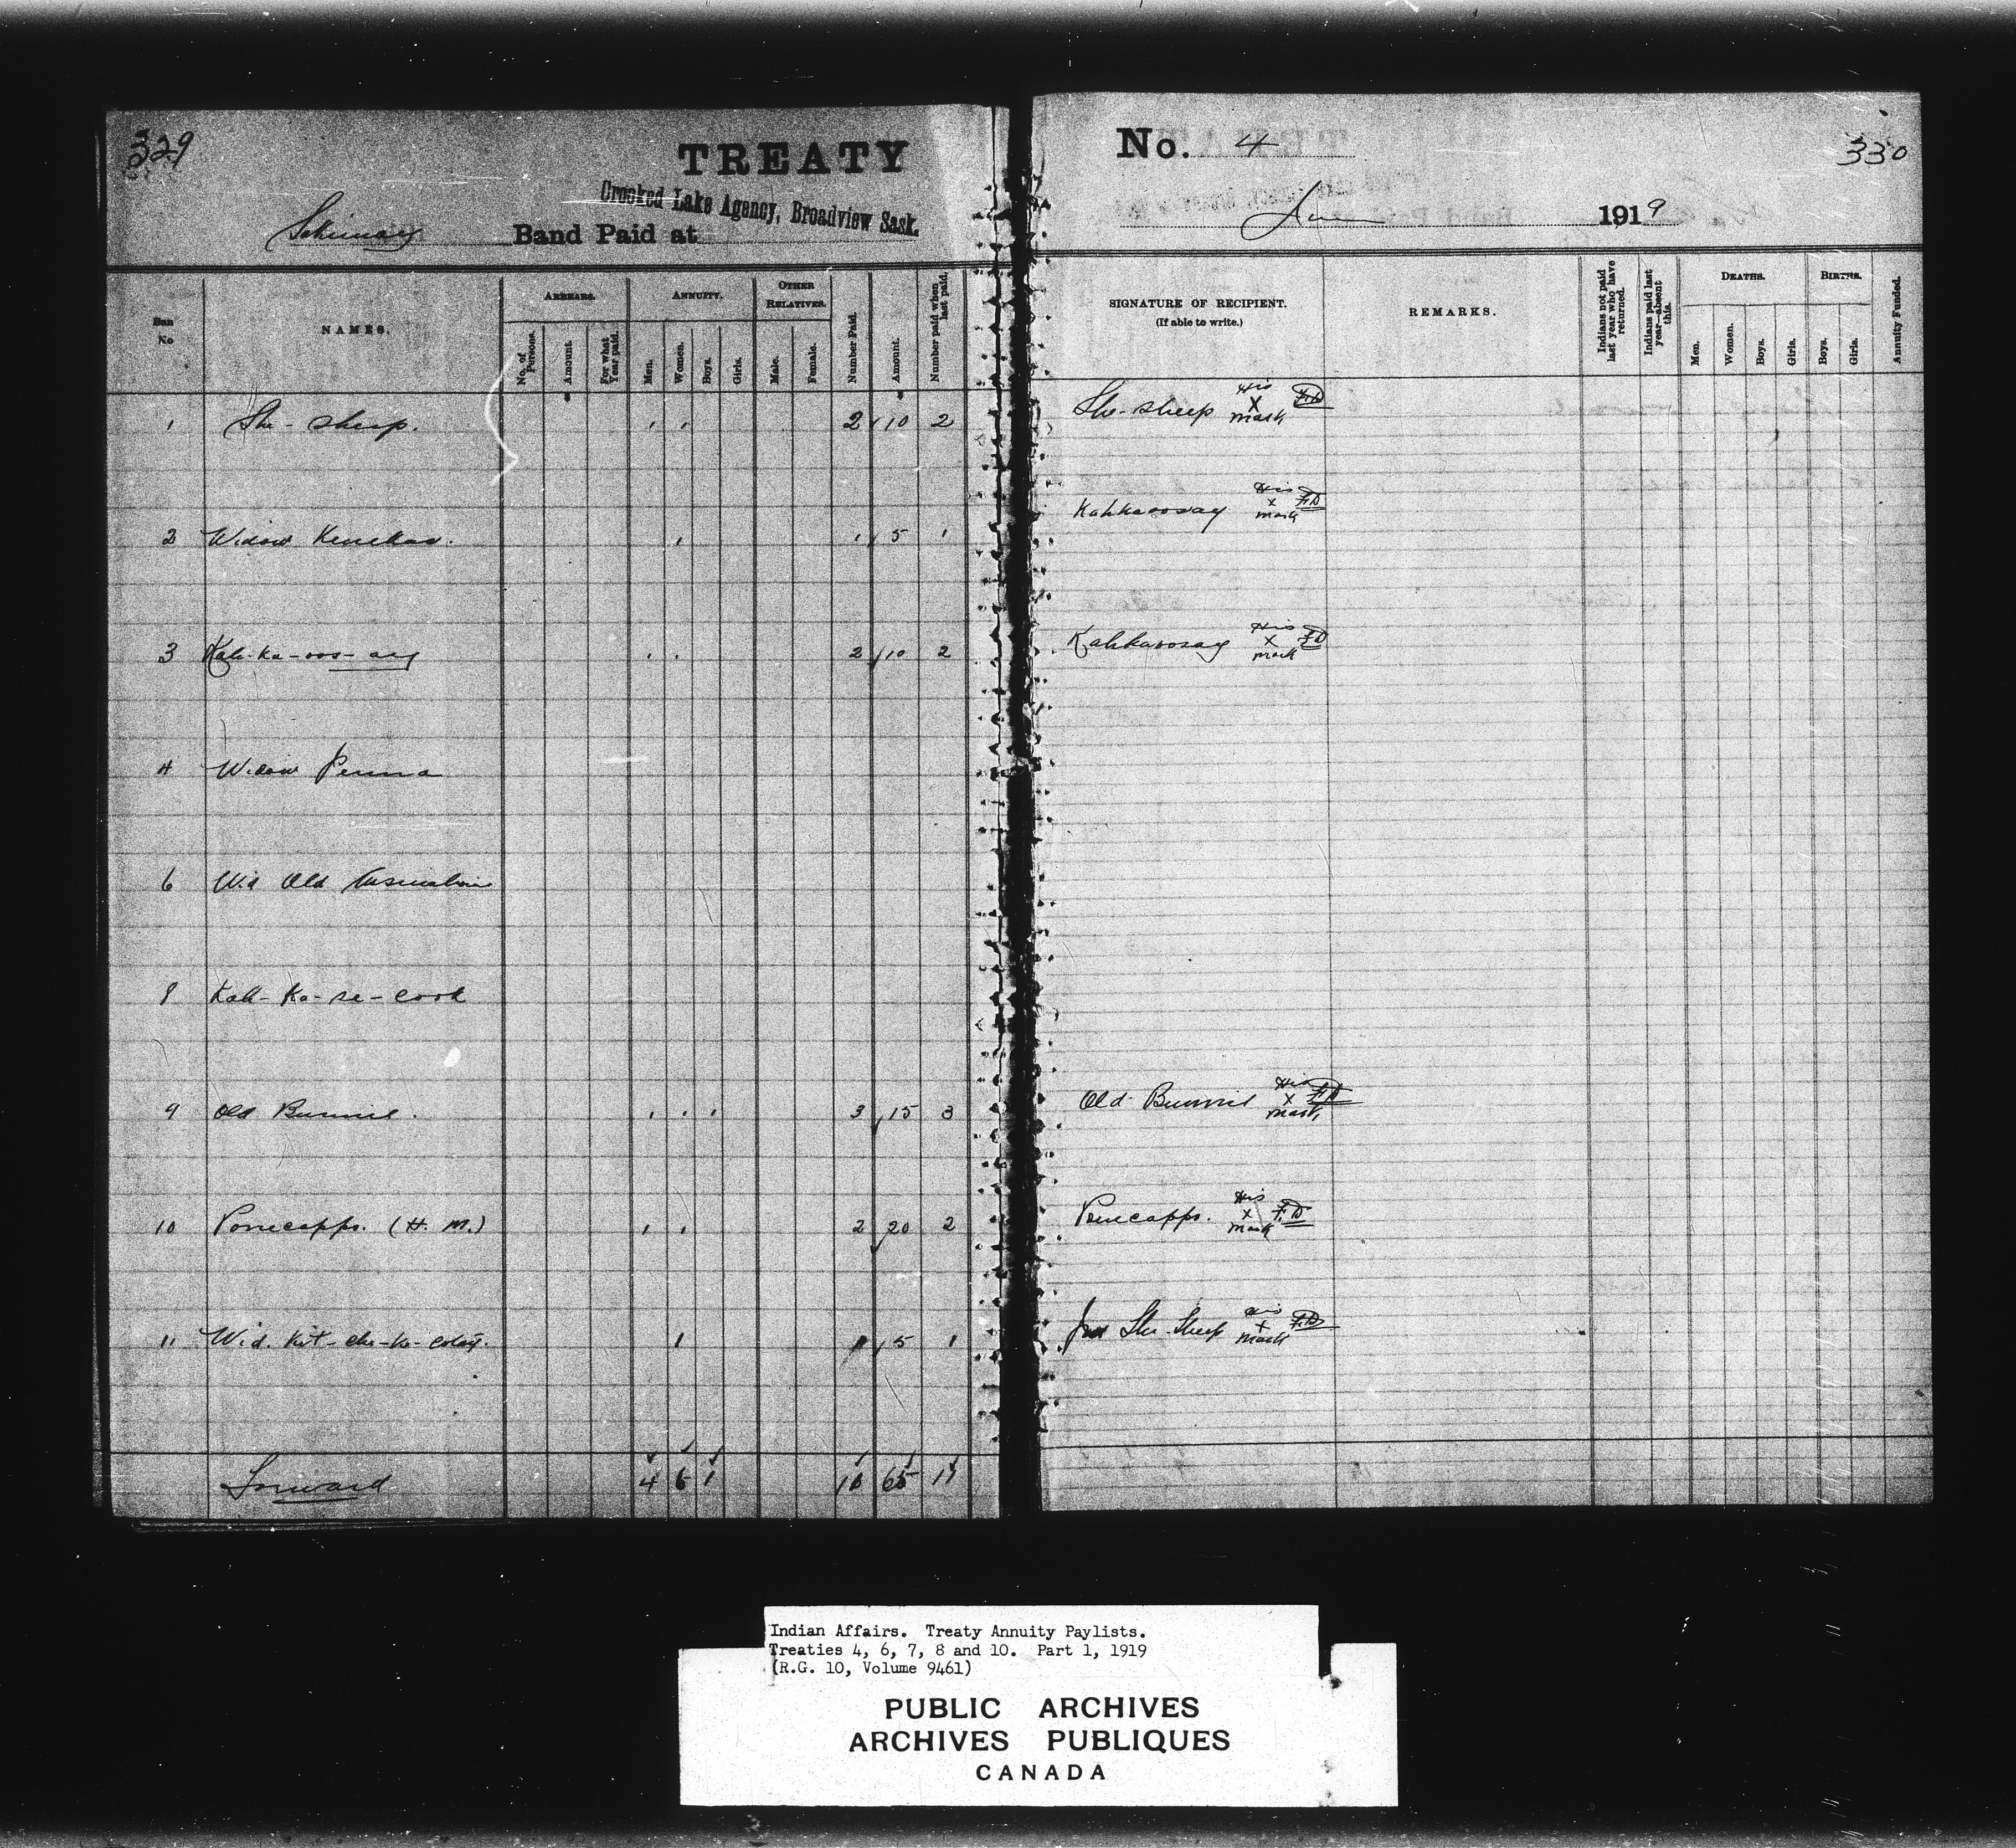 329
TREATY
Crooked Lake Agency, Broadview Sask.
Band Paid at
No. 4
330
June 1919
Ban No
NAMES.
ARREARS.
No. of Persons.
Amount.
For what Year paid.
ANNUITY.
Men.
Women.
Boys.
Girls.
OTHER RELATIVES.
Male.
Female.
Number Paid.
Amount.
Number paid when last paid.
SIGNATURE OF RECIPIENT.
(If able to write.)
REMARKS.
Indians not paid last year who have returned.
Indians paid last year—absent this.
DEATHS.
Men.
Women.
Boys.
Girls.
BIRTHS.
Boys.
Girls.
Annuity Funded.
1 She-sheep. 1 1 2 10 2 She-sheep His X mark F.D
2 Widow 1 1 5 1 Kahkaoosay His X mark F.D
3 Kah-ka-oos-ay 1 1 2 10 2 Kahkaoosay His X mark F.D
4 Widow Penna
6 Wid Old
8 Kah-ka-se-cook
9 Old Bunnie. 1 1 1 3 15 3 Old Bunnie His X mark F.D
10 Ponecapps. (H. M.) 1 1 2 20 2 Ponecapps. His X mark F.D
11 Wid. Kit-che-ke- 1 1 5 1 She-Sheep His X mark F.D
Forward 4 6 1 65 11
Indian Affairs. Treaty Annuity Paylists.
Treaties 4, 6, 7, 8 and 10. Part 1, 1919
(R.G. 10, Volume 9461)
PUBLIC ARCHIVES
ARCHIVES PUBLIQUES
CANADA